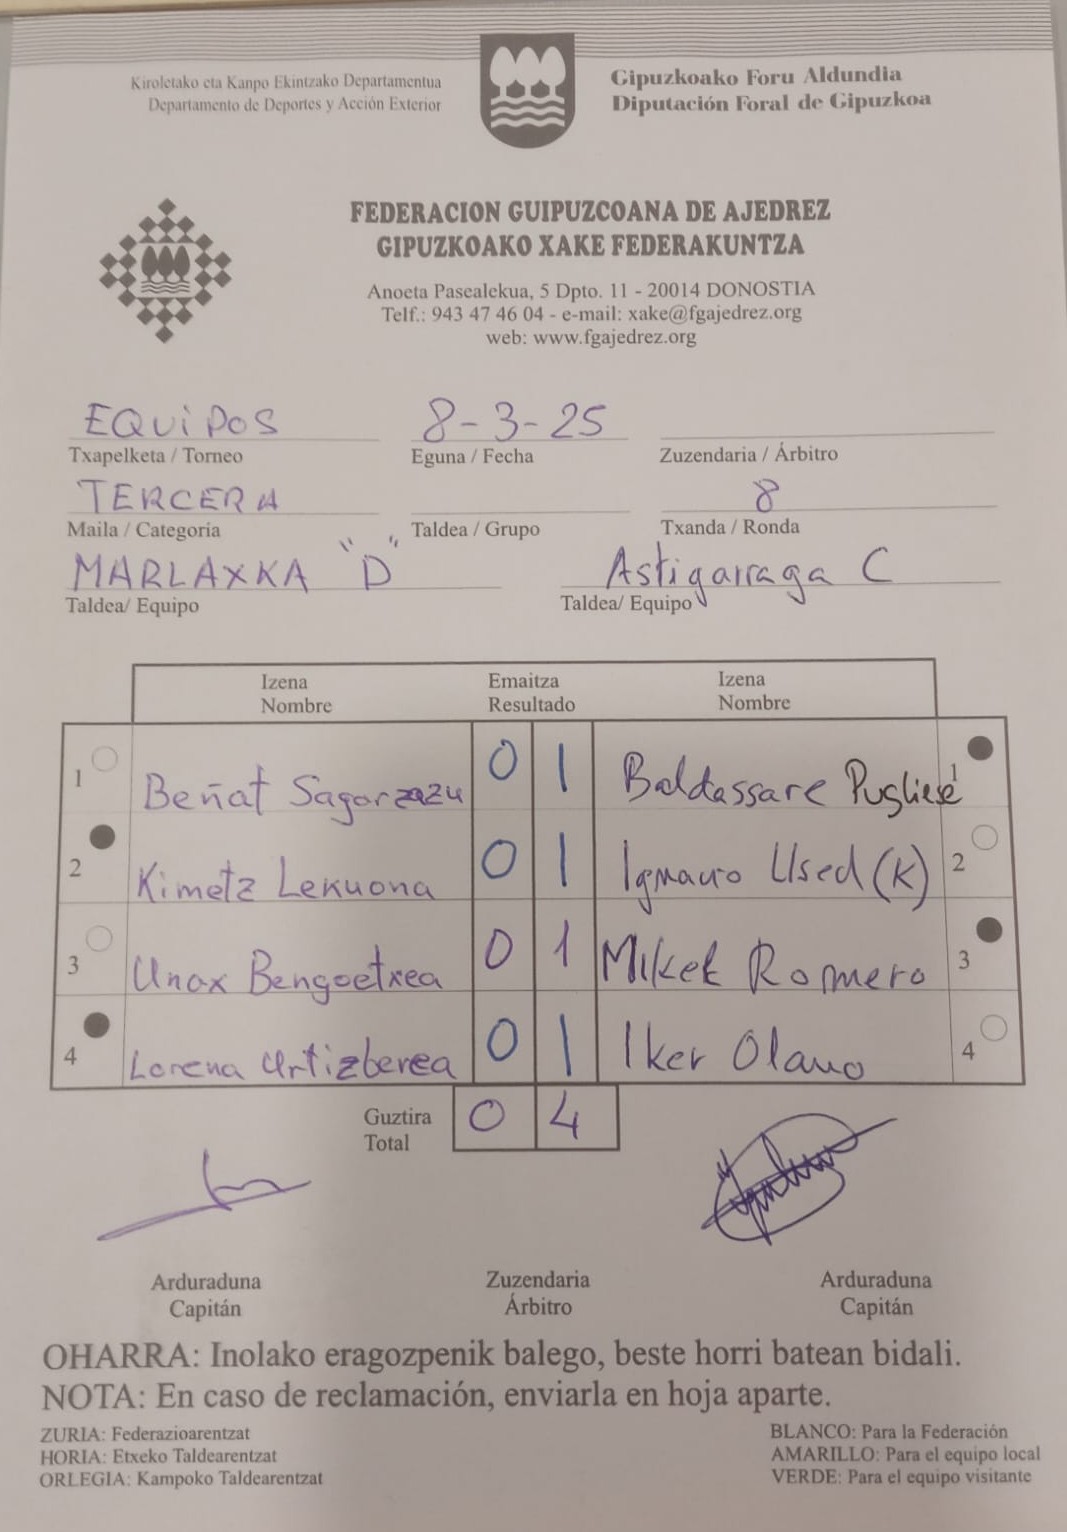 Kiroletako eta Kanpo Ekintzako Departamentua
Departamento de Deportes y Acción Exterior
Gipuzkoako Foru Aldundia
Diputación Foral de Gipuzkoa
FEDERACION GUIPUZCOANA DE AJEDREZ
GIPUZKOAKO XAKE FEDERAKUNTZA
Anoeta Pasealekua, 5 Dpto. 11 - 20014 DONOSTIA
Telf.: 943 47 46 04 - e-mail: xake@fgajedrez.org
web: www.fgajedrez.org
EQUIPOS 8-3-25
Txapelketa / Torneo Eguna / Fecha Zuzendaria / Árbitro
TERCERA 8
Maila / Categoria Taldea / Grupo Txanda / Ronda
MARLAXKA "D" Astigarraga C
Taldea/ Equipo Taldea/ Equipo
Izena Emaitza Izena
Nombre Resultado Nombre
1 Beñat Sagarzazu 0 1 Baldassare Pugliese 1
2 Kimetz Lekuona 0 1 Ignacio Used (K) 2
3 Unax Bengoetxea 0 1 Mikel Romero 3
4 Lorena Urtizberea 0 1 Iker Olano 4
Guztira
Total 0 4
Arduraduna Zuzendaria Arduraduna
Capitán Árbitro Capitán
OHARRA: Inolako eragozpenik balego, beste horri batean bidali.
NOTA: En caso de reclamación, enviarla en hoja aparte.
ZURIA: Federazioarentzat
HORIA: Etxeko Taldearentzat
ORLEGIA: Kampoko Taldearentzat
BLANCO: Para la Federación
AMARILLO: Para el equipo local
VERDE: Para el equipo visitante